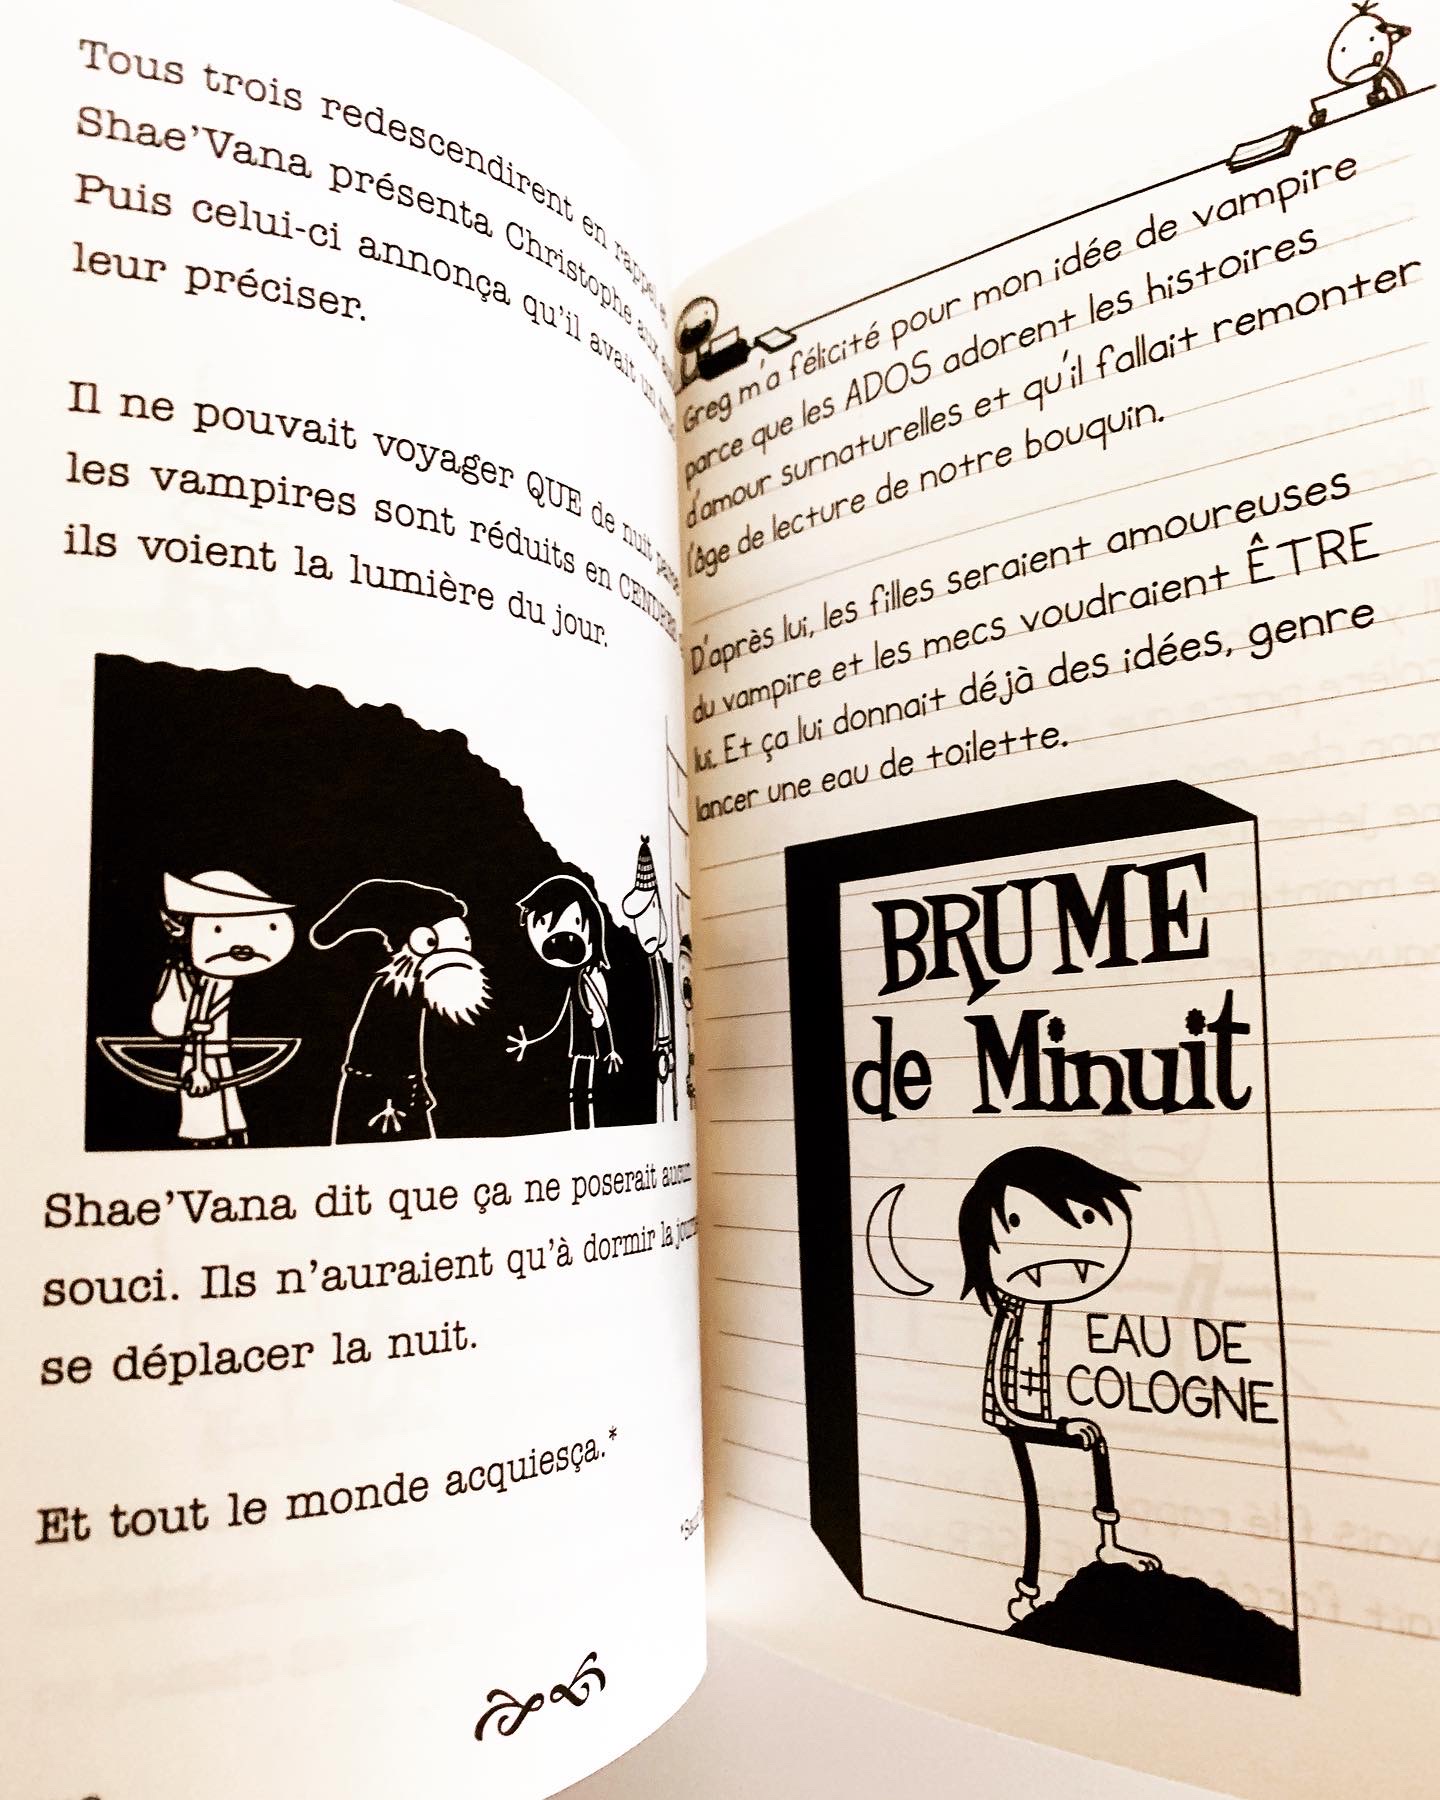 Tous trois redescendirent en rappel et
Shae'Vana présenta Christophe aux
Puis celui-ci annonça qu'il avait un
leur préciser.
Il ne pouvait voyager QUE de nuit parce
les vampires sont réduits en CENDRES
ils voient la lumière du jour.
Shae'Vana dit que ça ne poserait aucun
souci. Ils n'auraient qu'à dormir la
se déplacer la nuit.
Et tout le monde acquiesça.*
Greg m'a félicité pour mon idée de vampire
parce que les ADOS adorent les histoires
d'amour surnaturelles et qu'il fallait remonter
l'âge de lecture de notre bouquin.
D'après lui, les filles seraient amoureuses
du vampire et les mecs voudraient ÊTRE
lui. Et ça lui donnait déjà des idées, genre
lancer une eau de toilette.
BRUME
de Minuit
EAU DE
COLOGNE